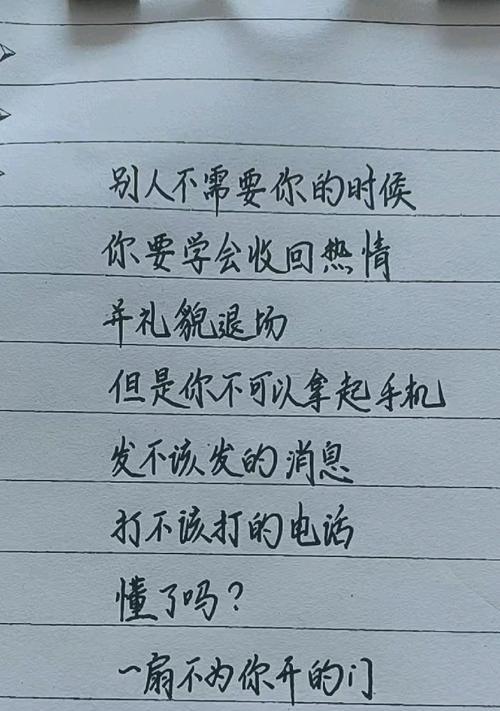 别人不需要你的时候
你要学会收回热情
并礼貌退场
但是你不可以拿起手机
发不该发的消息
打不该打的电话
懂了吗？
一扇不为你开的门